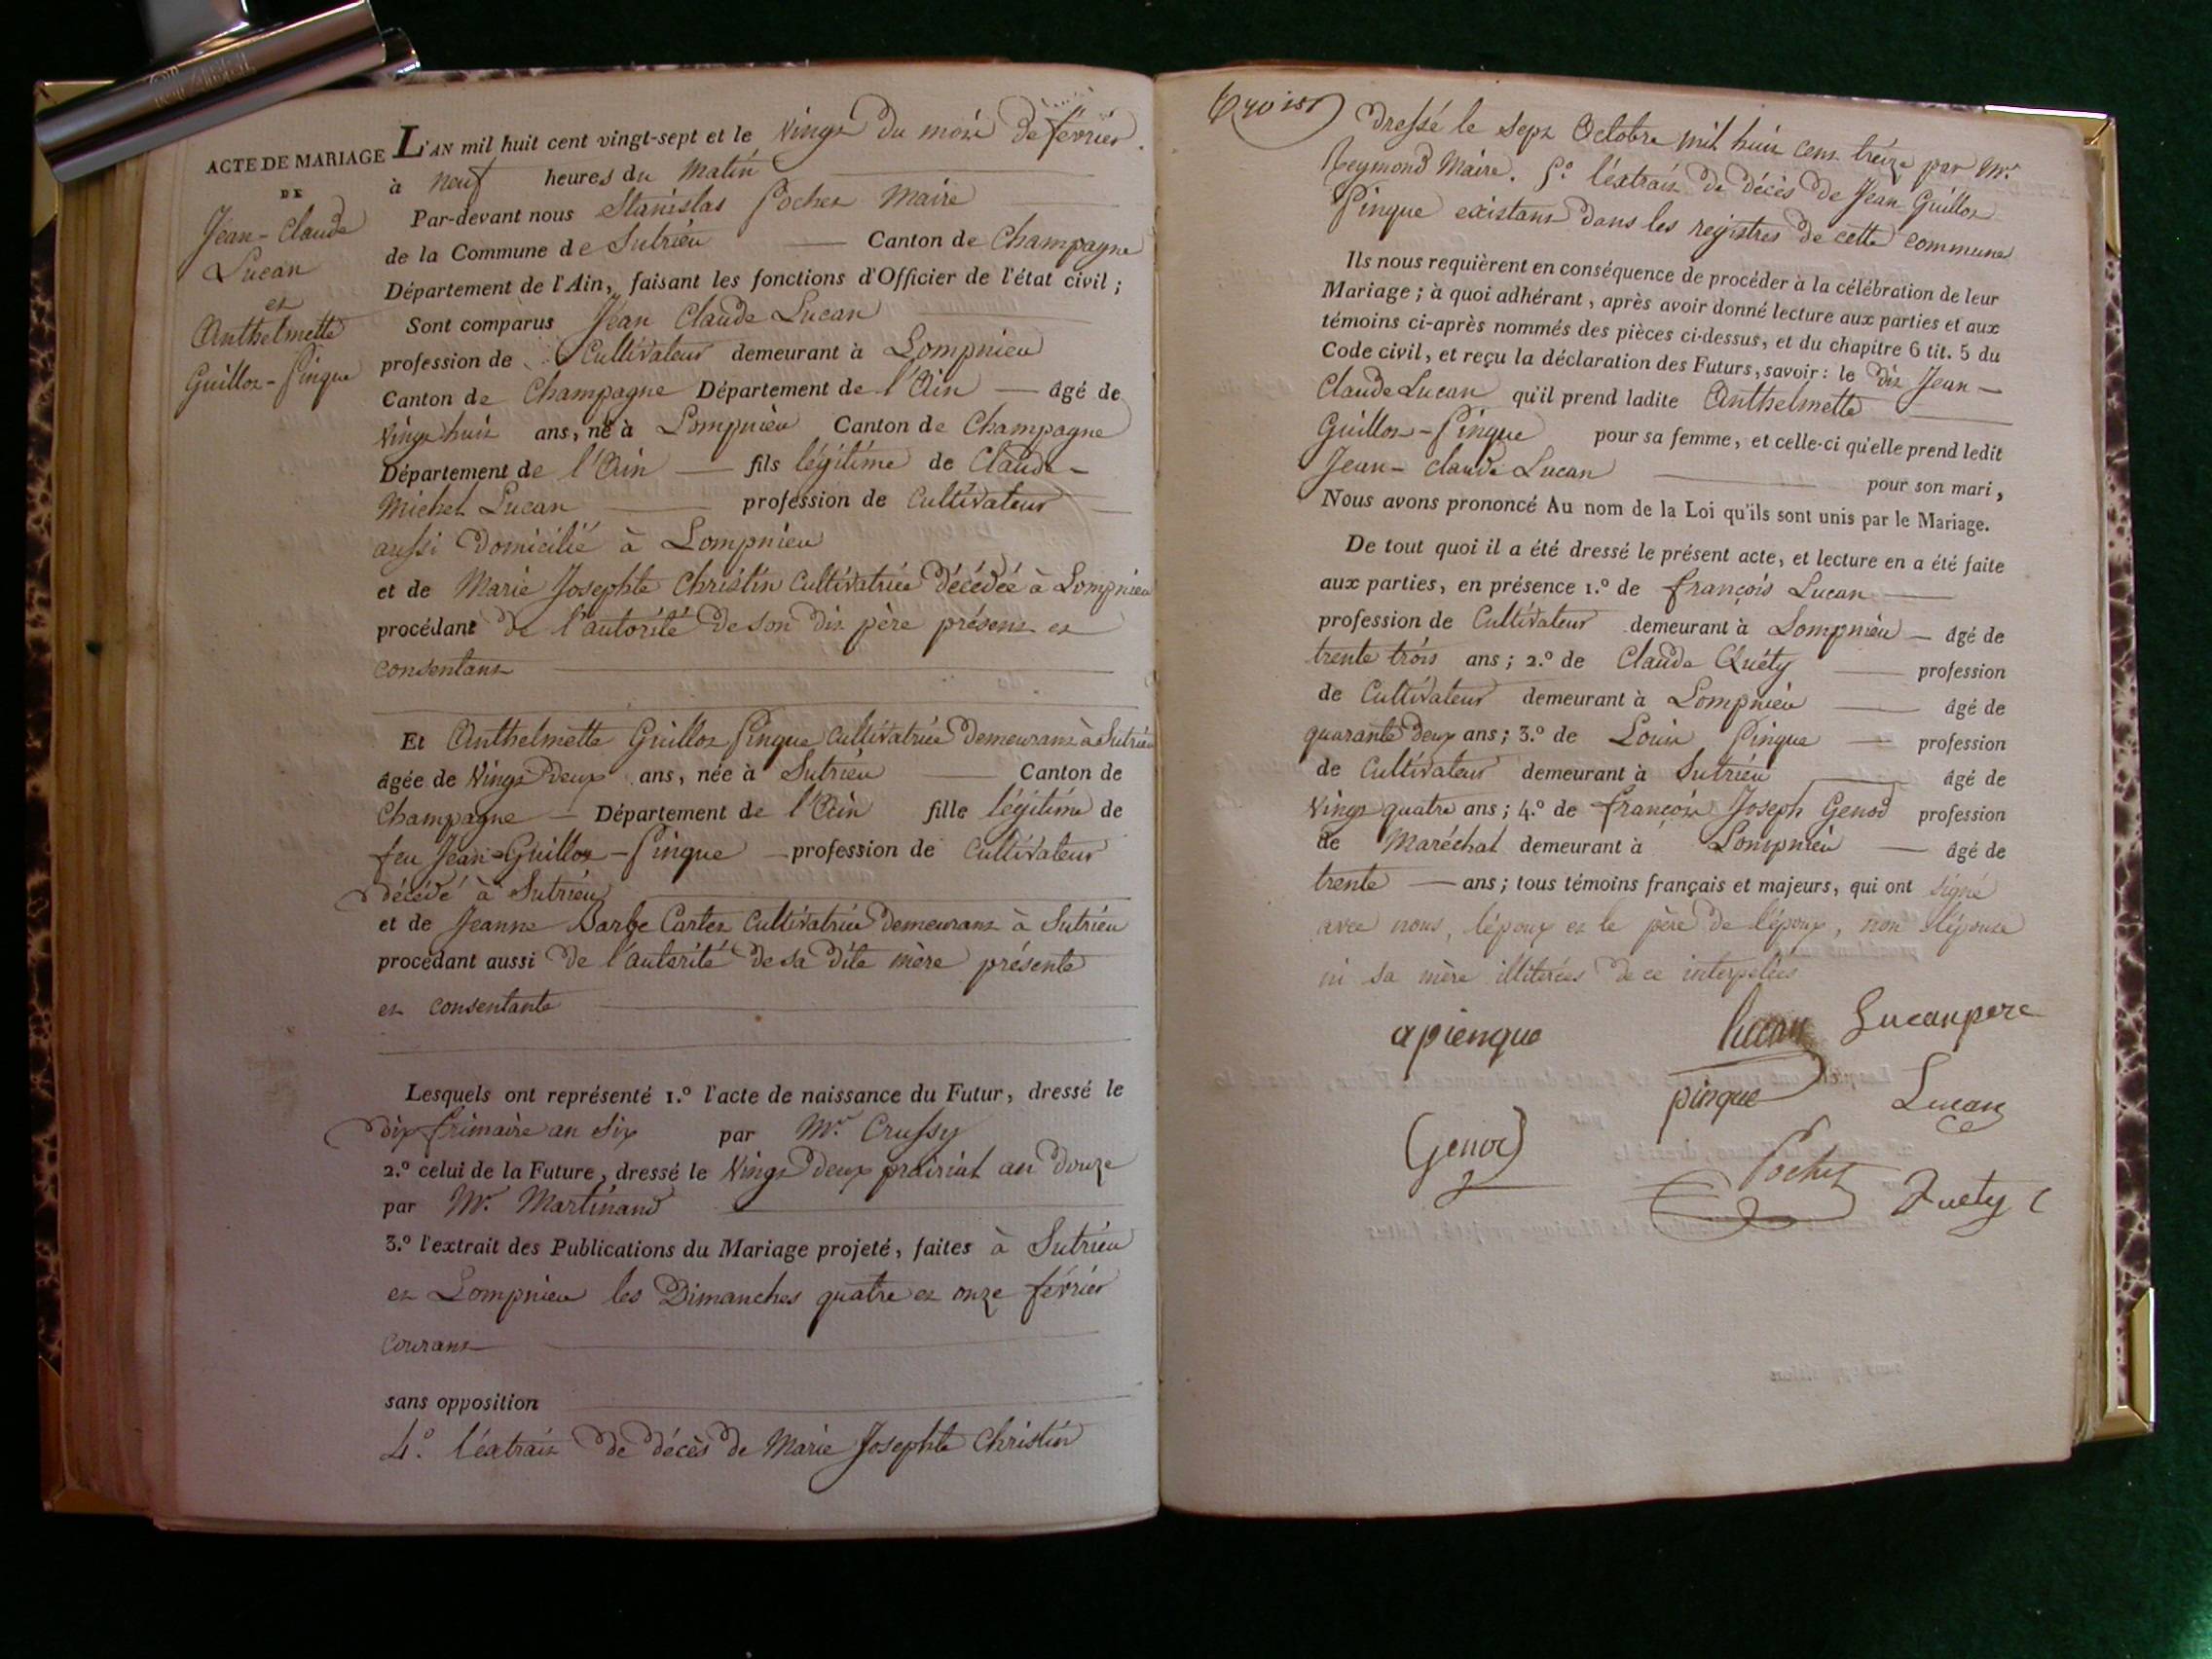 ACTE DE MARIAGE
DE
Jean-Claude
Lucan
et
Anthelmette
Guillot-Pingue
L'AN mil huit cent vingt-sept et le Vingt du mois de février.
à neuf heures du Matin
Par-devant nous Stanislas Pochet Maire
de la Commune de Sutrieu Canton de Champagne
Département de l'Ain, faisant les fonctions d'Officier de l'état civil ;
Sont comparus Jean Claude Lucan
profession de Cultivateur demeurant à Lompnieu
Canton de Champagne Département de l'Ain âgé de
Vingt huit ans, né à Lompnieu Canton de Champagne
Département de l'Ain fils légitime de Claude-
Michel Lucan profession de Cultivateur
aussi Domicilié à Lompnieu
et de Marie Josephte Christin Cultivatrice Décédée à Lompnieu
procédant de l'autorité de son dit père présent et
consentant
Et Anthelmette Guillot Pingue Cultivatrice Demeurant à Sutrieu
âgée de Vingt Deux ans, née à Sutrieu Canton de
Champagne Département de l'Ain fille légitime de
feu Jean-Guillot-Pingue profession de Cultivateur
décédé à Sutrieu
et de Jeanne Barbe Cartet Cultivatrice Demeurant à Sutrieu
procédant aussi de l'autorité de sa dite mère présente
et consentante
Lesquels ont représenté 1.º l'acte de naissance du Futur, dressé le
Dix frimaire an Six par Mr. Crussy
2.º celui de la Future, dressé le Vingt Deux prairial an Douze
par Mr. Martinand
3.º l'extrait des Publications du Mariage projeté, faites à Sutrieu
et Lompnieu les Dimanches quatre et onze février
Courant
sans opposition
4.º l'extrait de décès de Marie Josephte Christin
dressé le Sept Octobre mil huit cent treize par Mr.
Reymond Maire. 5.º l'extrait de décès de Jean Guillot
Pingue existant dans les registres de cette commune
Ils nous requièrent en conséquence de procéder à la célébration de leur
Mariage ; à quoi adhérant, après avoir donné lecture aux parties et aux
témoins ci-après nommés des pièces ci-dessus, et du chapitre 6 tit. 5 du
Code civil, et reçu la déclaration des Futurs, savoir : le dit Jean-
Claude Lucan qu'il prend ladite Anthelmette
Guillot-Pingue pour sa femme, et celle-ci qu'elle prend ledit
Jean-Claude Lucan pour son mari,
Nous avons prononcé Au nom de la Loi qu'ils sont unis par le Mariage.
De tout quoi il a été dressé le présent acte, et lecture en a été faite
aux parties, en présence 1.º de françois Lucan
profession de Cultivateur demeurant à Lompnieu âgé de
trente trois ans ; 2.º de Claude Quéty profession
de Cultivateur demeurant à Lompnieu âgé de
quarante deux ans ; 3.º de Louis Pingue profession
de Cultivateur demeurant à Sutrieu âgé de
Vingt quatre ans ; 4.º de françois Joseph Genod profession
de Maréchal demeurant à Lompnieu âgé de
trente ans ; tous témoins français et majeurs, qui ont signé
avec nous, l'époux et le père de l'époux, non l'épouse
ni sa mère illiterées de ce interpelées
apienque lucan Lucan pere
pingue Lucan
Genod Pochet Quety C